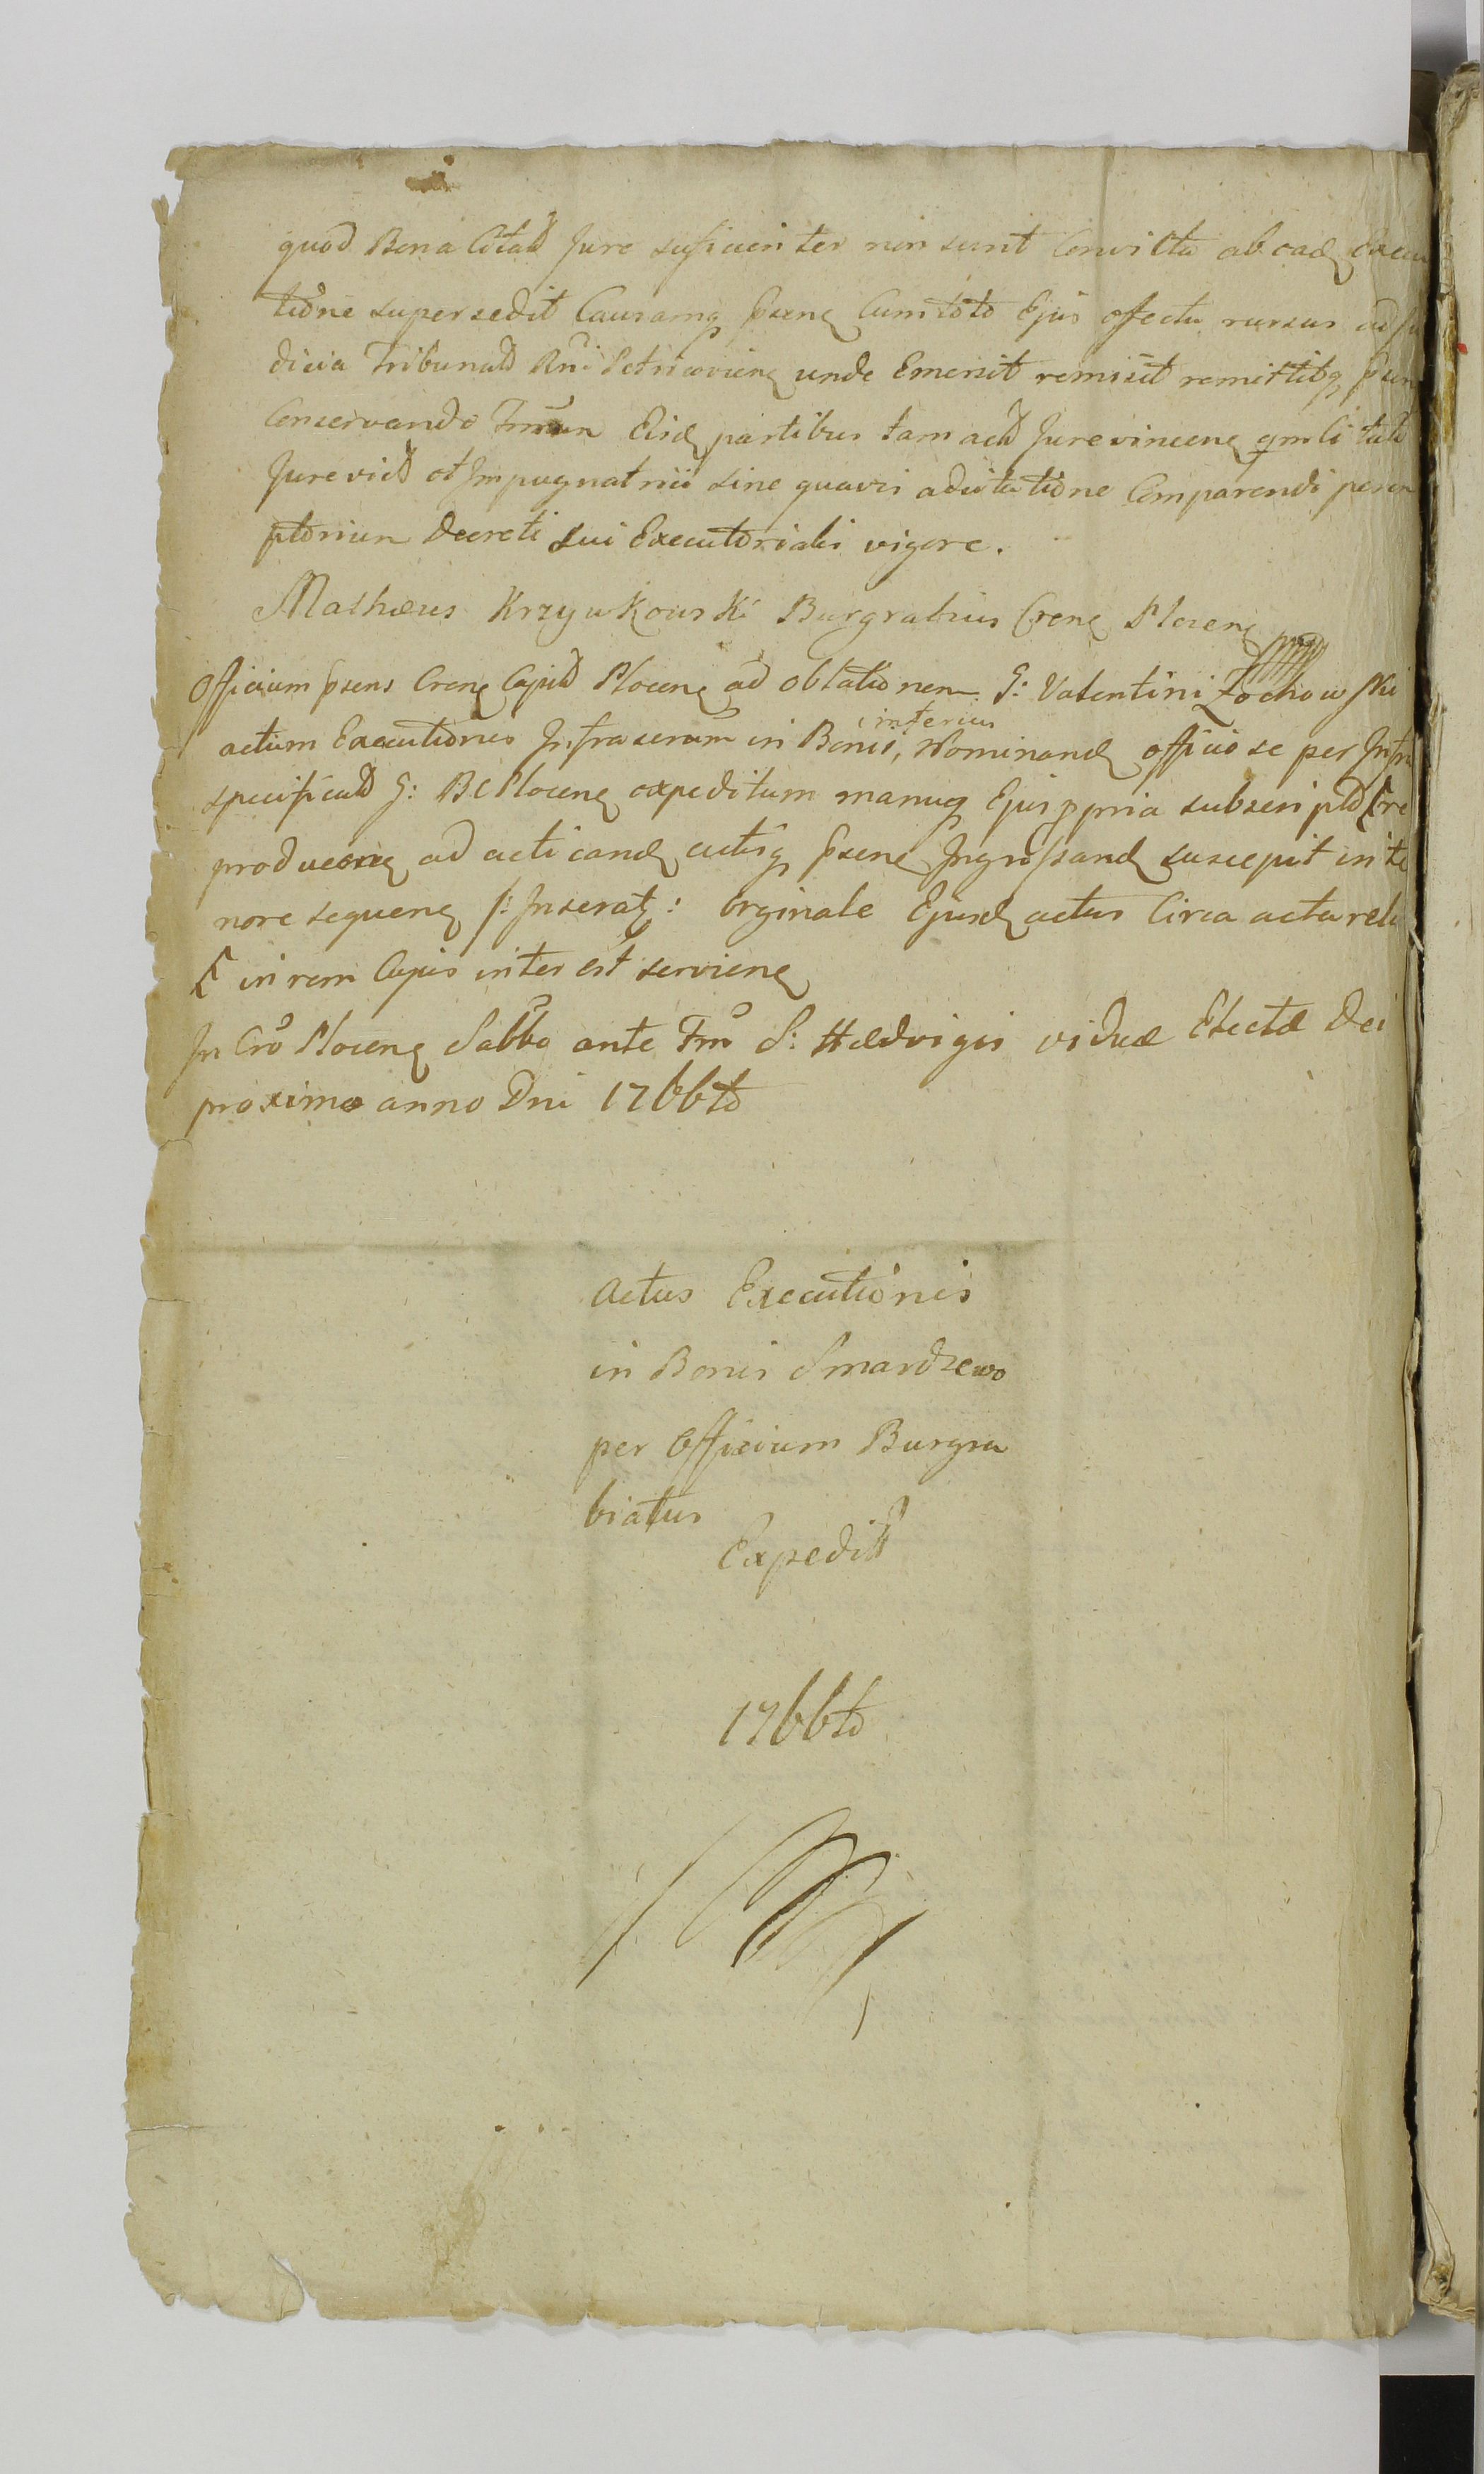 quod Bona Citatt Jure suficienter non sunt Convicta ab ead Execu
tione supersedit Causamq psene Cum toto Ejus effectu rursus ad Ju
dicia Tribunatt Rni Petricoviene unde Emersit remisit remittitq
Conservando Eisd partibus tam Jure vincene
Jure vict et Impugnatrii sine quavis adcitatione Comparendi perem
ptorium Decreti sui Executorialis vigore.
Mathæus Krzywkowski Burgrabius Crene Plocene
Officium psens Crene Capitt Plocene ad oblationem G: Valentini Zochowski
actum Executionis Infrascrum in Bonis, inferius Nominand officiose per Infra
specificatt G: BC Plocene expeditum manuq Ejus ppria subscriptt Cre
producone ad acticand actisq psene Ingrossand suscepit in te
nore sequene /: Inserat: orginale Ejusd actus Circa acta relic
in rem Cujus interest serviene
In Cro Plocene Sabbo ante Fm S: Hædvigis viduæ Electæ Dei
proximo anno Dni 1766to
Actus Executionis
in Bonis Smardzewo
per Officium Burgra
biatus
Expeditt
1766to